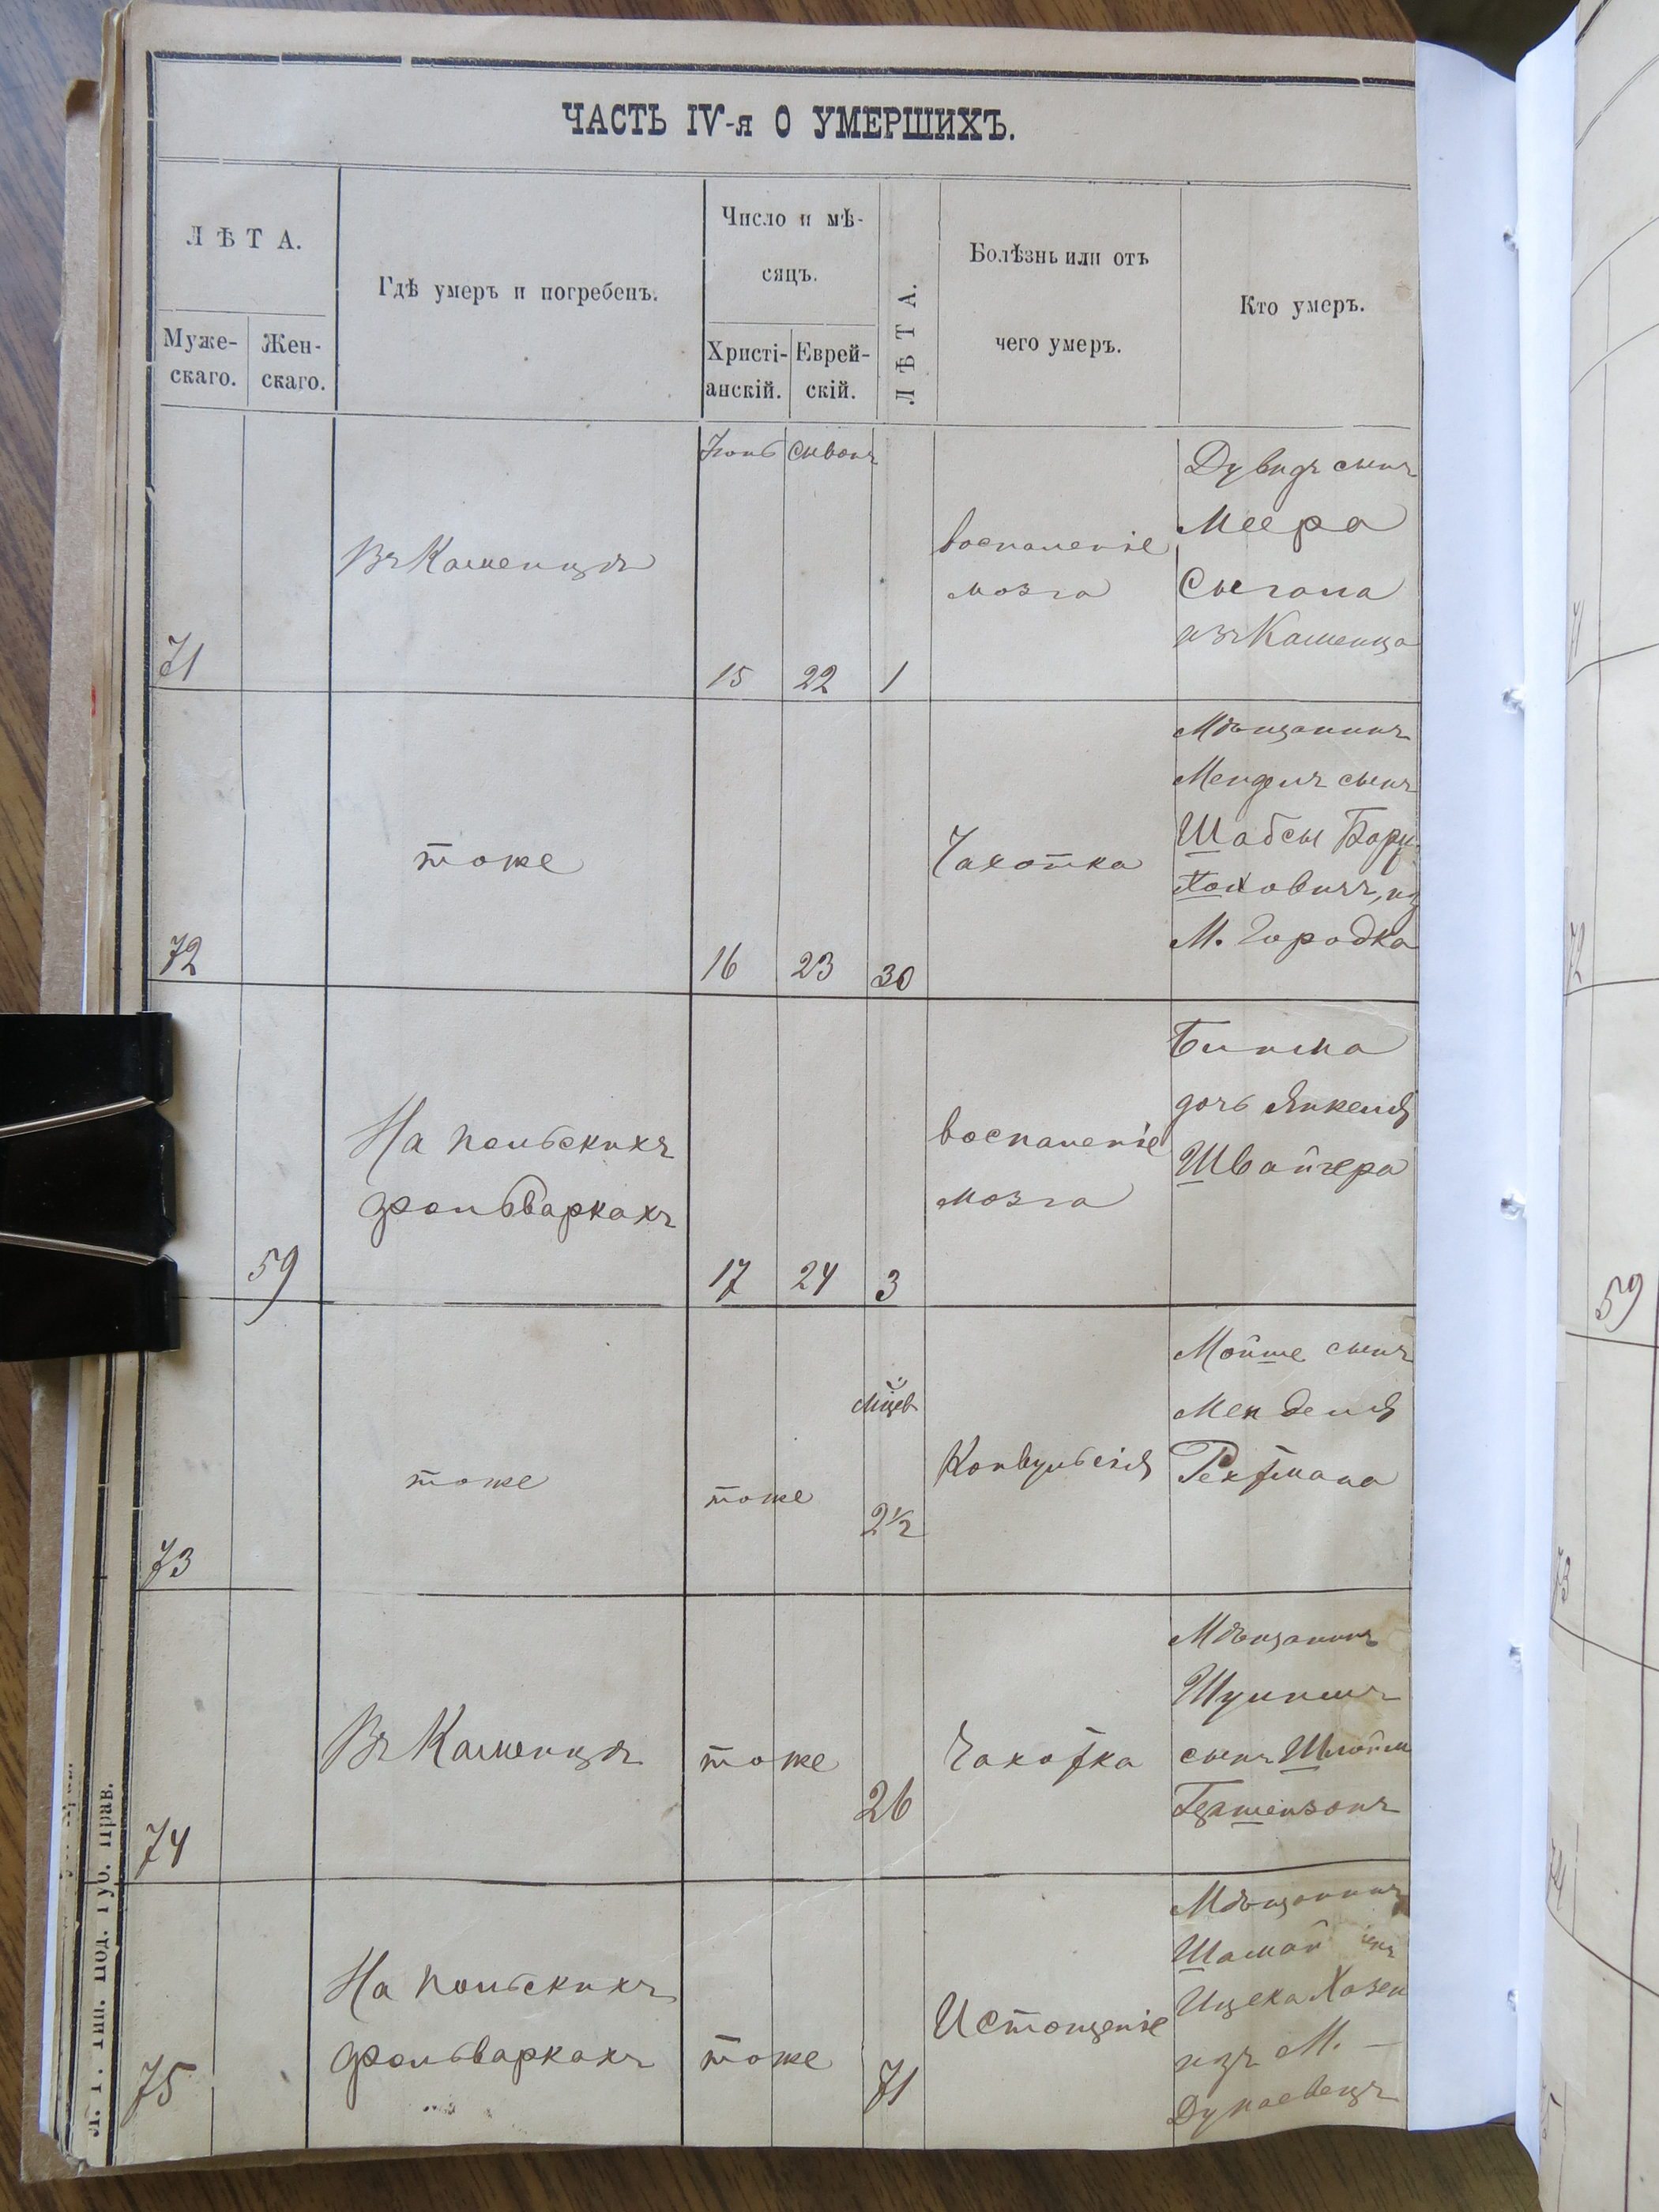 ЧАСТЬ IV-я О УМЕРШИХЪ.
ЛѢТА.
Муже-
скаго.
Жен-
скаго.
Гдѣ умеръ и погребенъ.
Число и мѣ-
сяцъ.
Христі-
анскій.
Еврей-
скій.
ЛѢТА.
Болѣзнь или отъ
чего умеръ.
Кто умеръ.
71
Въ Каменцѣ
Іюнь Сывонъ
15 22 1
воспаленіе
мозга
Дувидъ сынъ
Меера
Сыгала
изъ Каменца
72
тоже
16 23 30
Чахотка
Мѣщанинъ
Мендель сынъ
Шабсы
М. Городка
59
На польскихъ
фольваркахъ
17 24 3
воспаленіе
мозга
дочь Янкеля
Швайгера
73
тоже
тоже
2½
Конвульсія
Мойше сынъ
Менделя
74
Въ Каменцѣ
тоже
26
Чахотка
Мѣщанинъ
сынъ
75
На польскихъ
фольваркахъ
тоже
71
Истощеніе
Мѣщанинъ
Шамай
Ицека Хазен
изъ М. —
Дунаевецъ
59
73
Л. Г. Тип. Под. Губ. Прав.